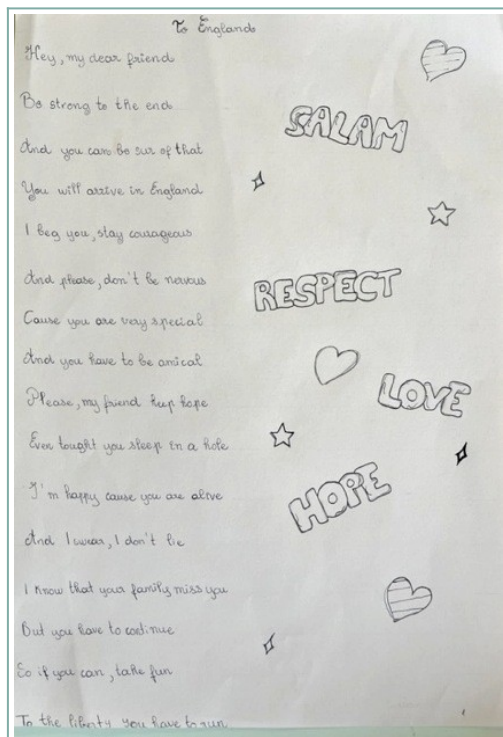 To England
Hey, my dear friend
Be strong to the end
SALAM
And you can be sur of that
You will arrive in England
I beg you, stay courageous
And please, don't be nervous
RESPECT
Cause you are very special
And you have to be amical
Please, my friend keep hope
LOVE
Even tought you sleep in a hole
I'm happy cause you are alive
HOPE
And I swear, I don't lie
I know that your family miss you
But you have to continue
So if you can, take fun
To the liberty you have to run